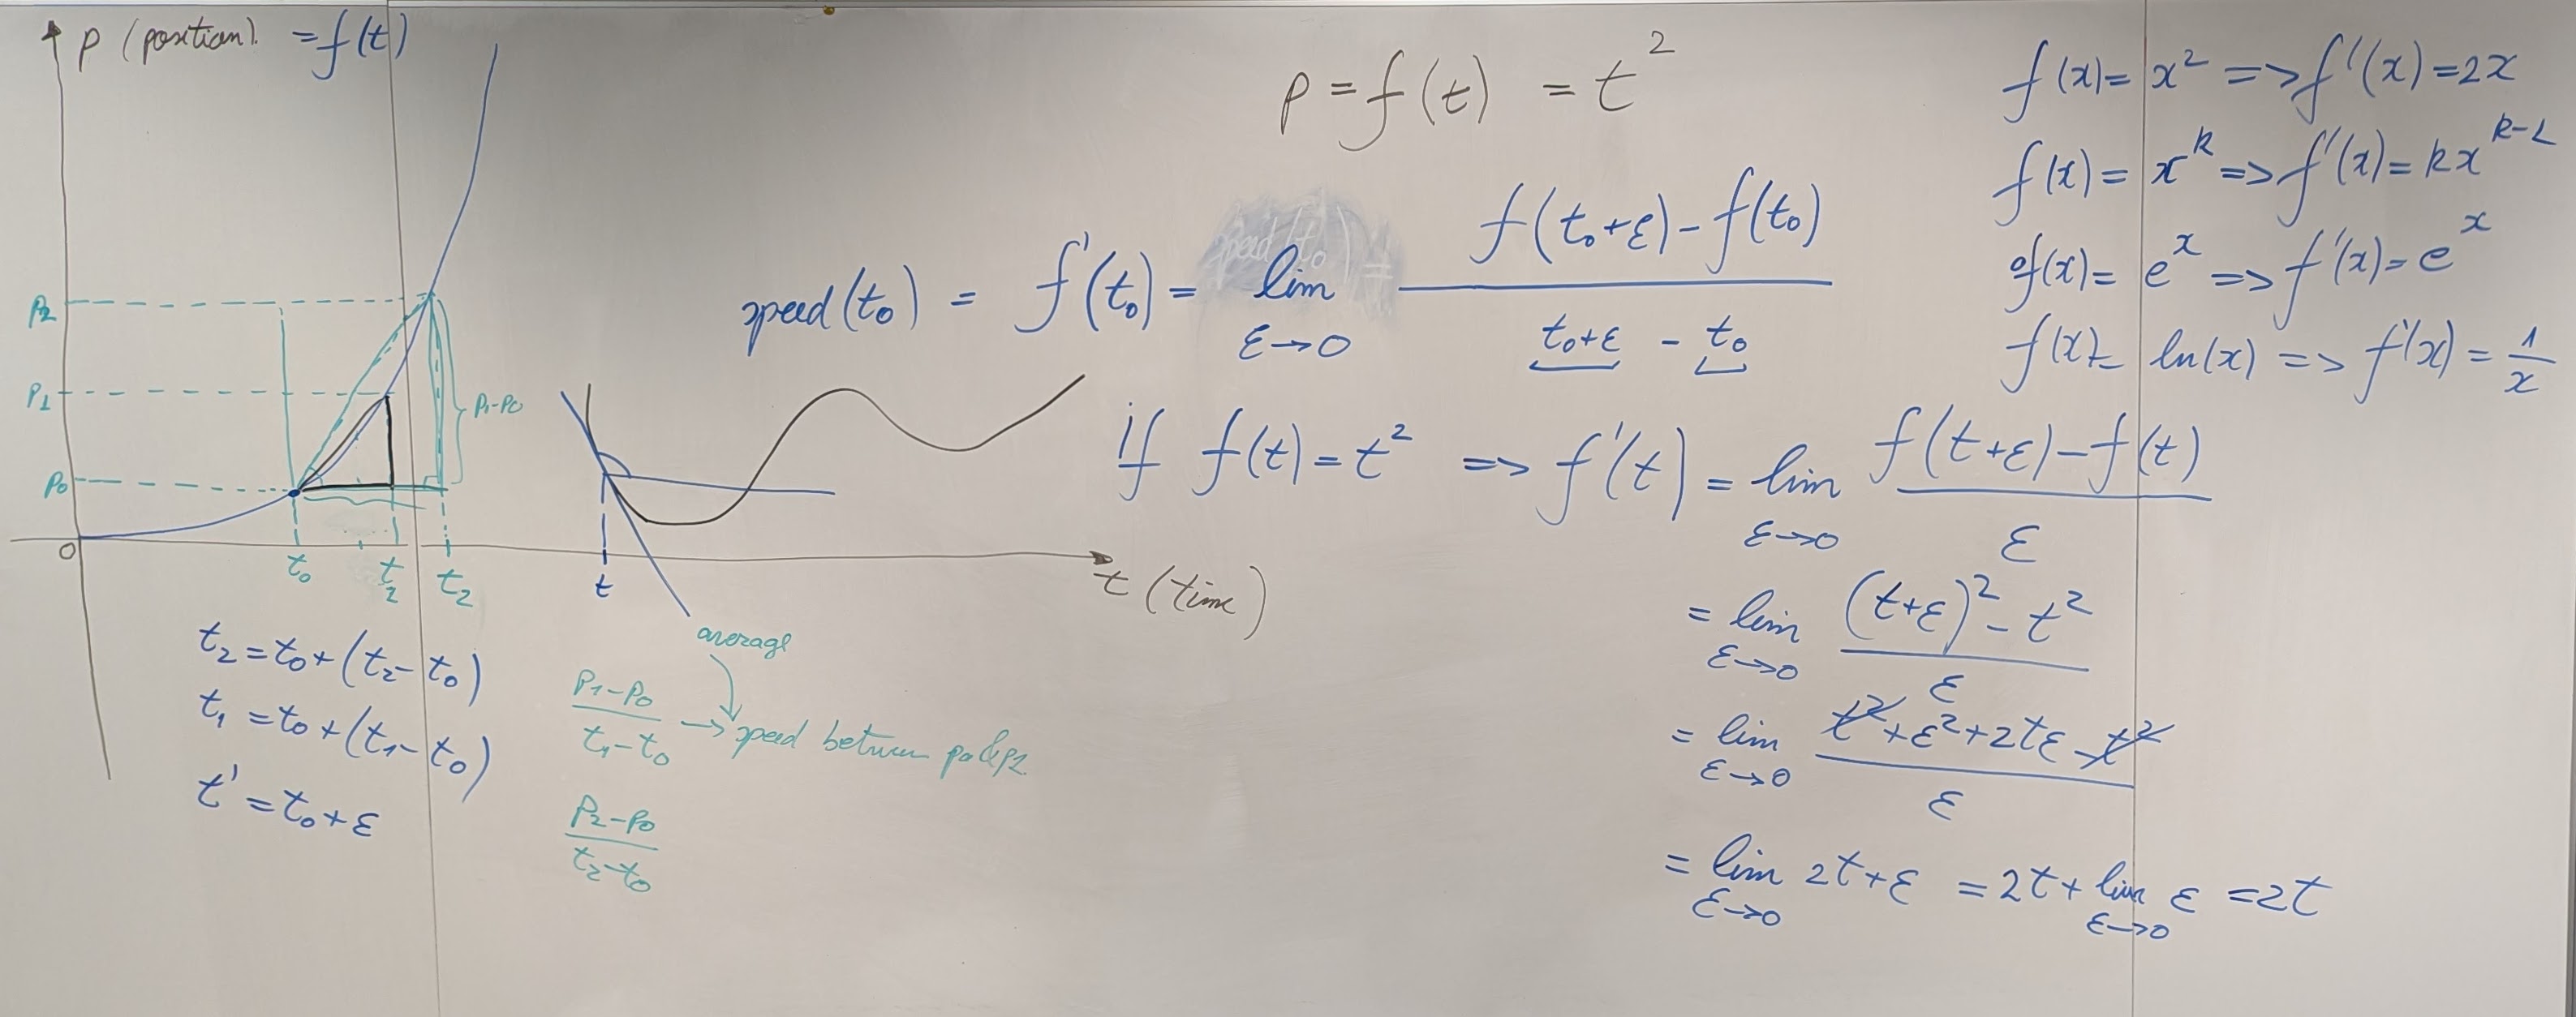 p (position). = f(t)
P2
P1
P0
P1-P0
0
t0
t2
t2
t
t (time)
t2 = t0 + (t2 - t0)
t1 = t0 + (t1 - t0)
t' = t0 + ε
average
P1-P0 / t1-t0 → speed between p0 & p1
P2-P0 / t2-t0
p = f(t) = t²
speed(t0) = f'(t0) = lim ε→0 (f(t0+ε) - f(t0)) / (t0+ε - t0)
speed(t0) =
if f(t) = t² => f'(t) = lim ε→0 (f(t+ε) - f(t)) / ε
= lim ε→0 ((t+ε)² - t²) / ε
= lim ε→0 (t² + ε² + 2tε - t²) / ε
= lim ε→0 2t+ε = 2t + lim ε→0 ε = 2t
f(x) = x² => f'(x) = 2x
f(x) = x^k => f'(x) = kx^(k-1)
f(x) = e^x => f'(x) = e^x
f(x) = ln(x) => f'(x) = 1/x